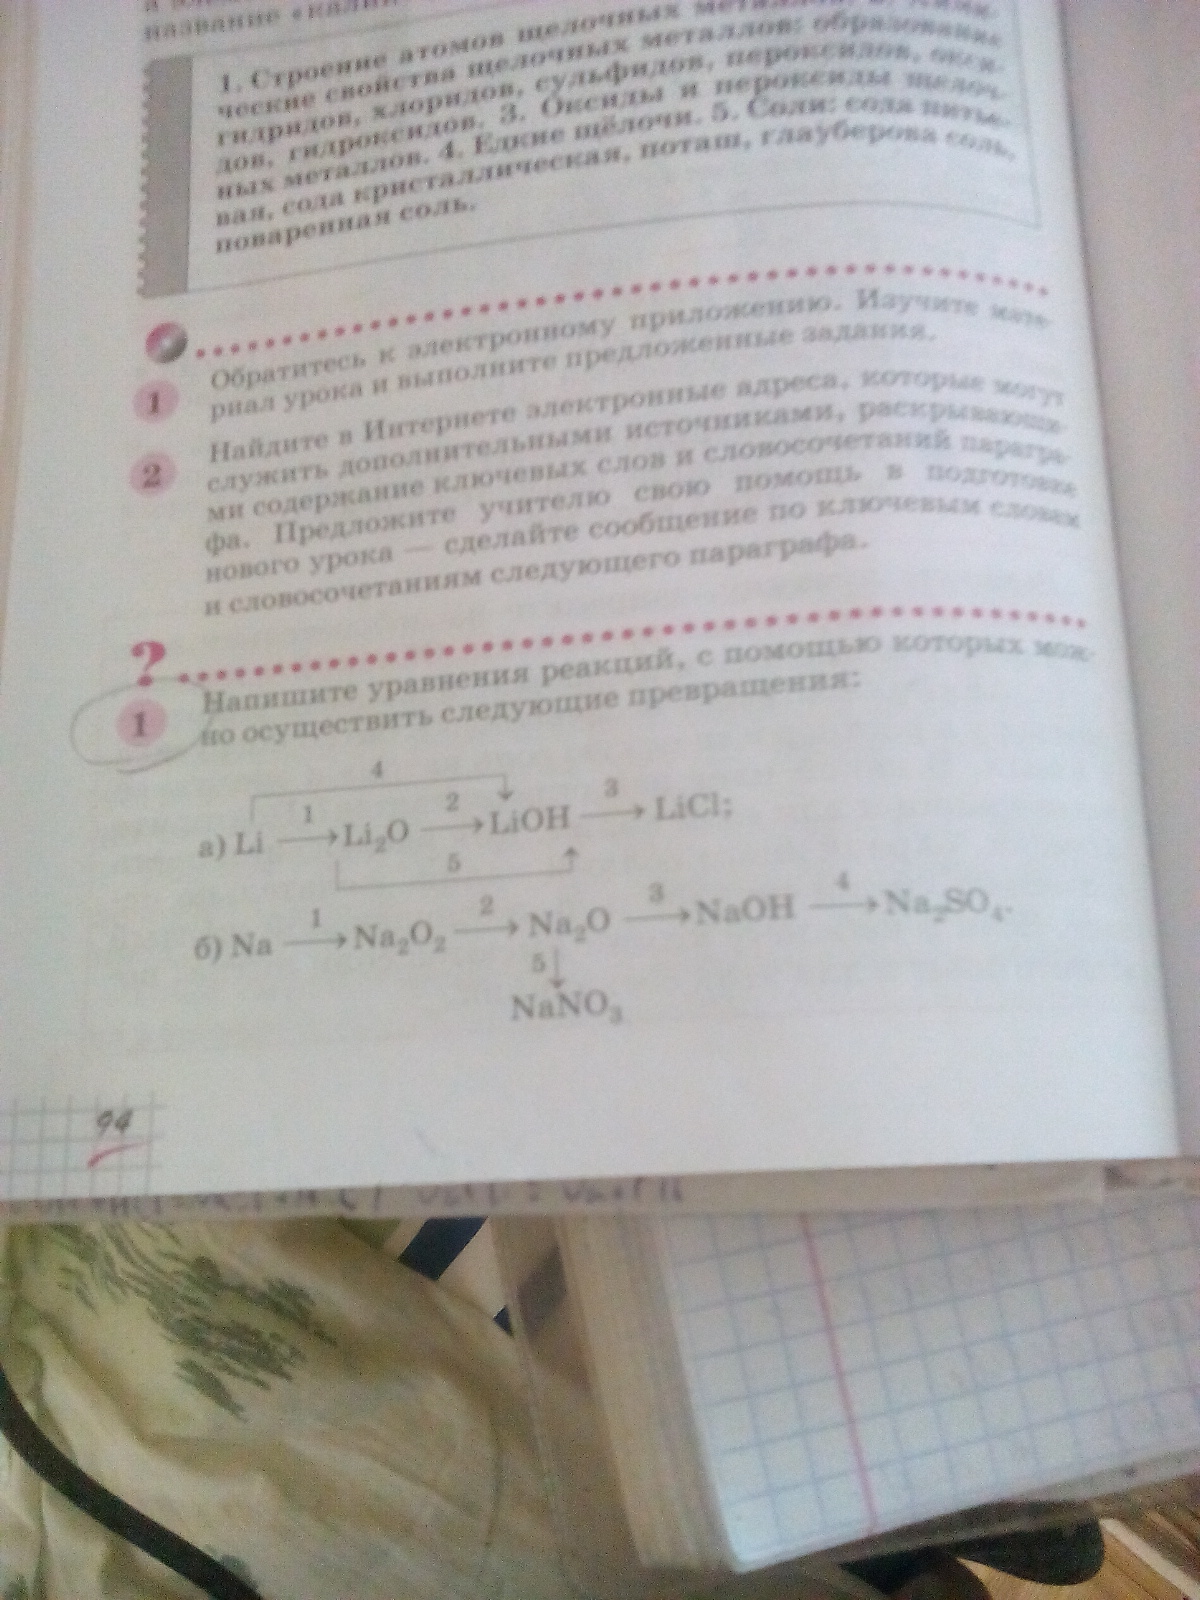 название «кали
1. Строение атомов щелочных металлов. 2. Хими-
ческие свойства щелочных металлов: образование
гидридов, хлоридов, сульфидов, пероксидов, окси-
дов, гидроксидов. 3. Оксиды и пероксиды щелоч-
ных металлов. 4. Едкие щёлочи. 5. Соли: сода питье-
вая, сода кристаллическая, поташ, глауберова соль,
поваренная соль.
1 Обратитесь к электронному приложению. Изучите мате-
риал урока и выполните предложенные задания.
2 Найдите в Интернете электронные адреса, которые могут
служить дополнительными источниками, раскрывающи-
ми содержание ключевых слов и словосочетаний парагра-
фа. Предложите учителю свою помощь в подготовке
нового урока — сделайте сообщение по ключевым словам
и словосочетаниям следующего параграфа.
?
1 Напишите уравнения реакций, с помощью которых мож-
но осуществить следующие превращения:
4
1 2 3
а) Li → Li₂O → LiOH → LiCl;
5
1 2 3 4
б) Na → Na₂O₂ → Na₂O → NaOH → Na₂SO₄.
5 ↓
NaNO₃
94